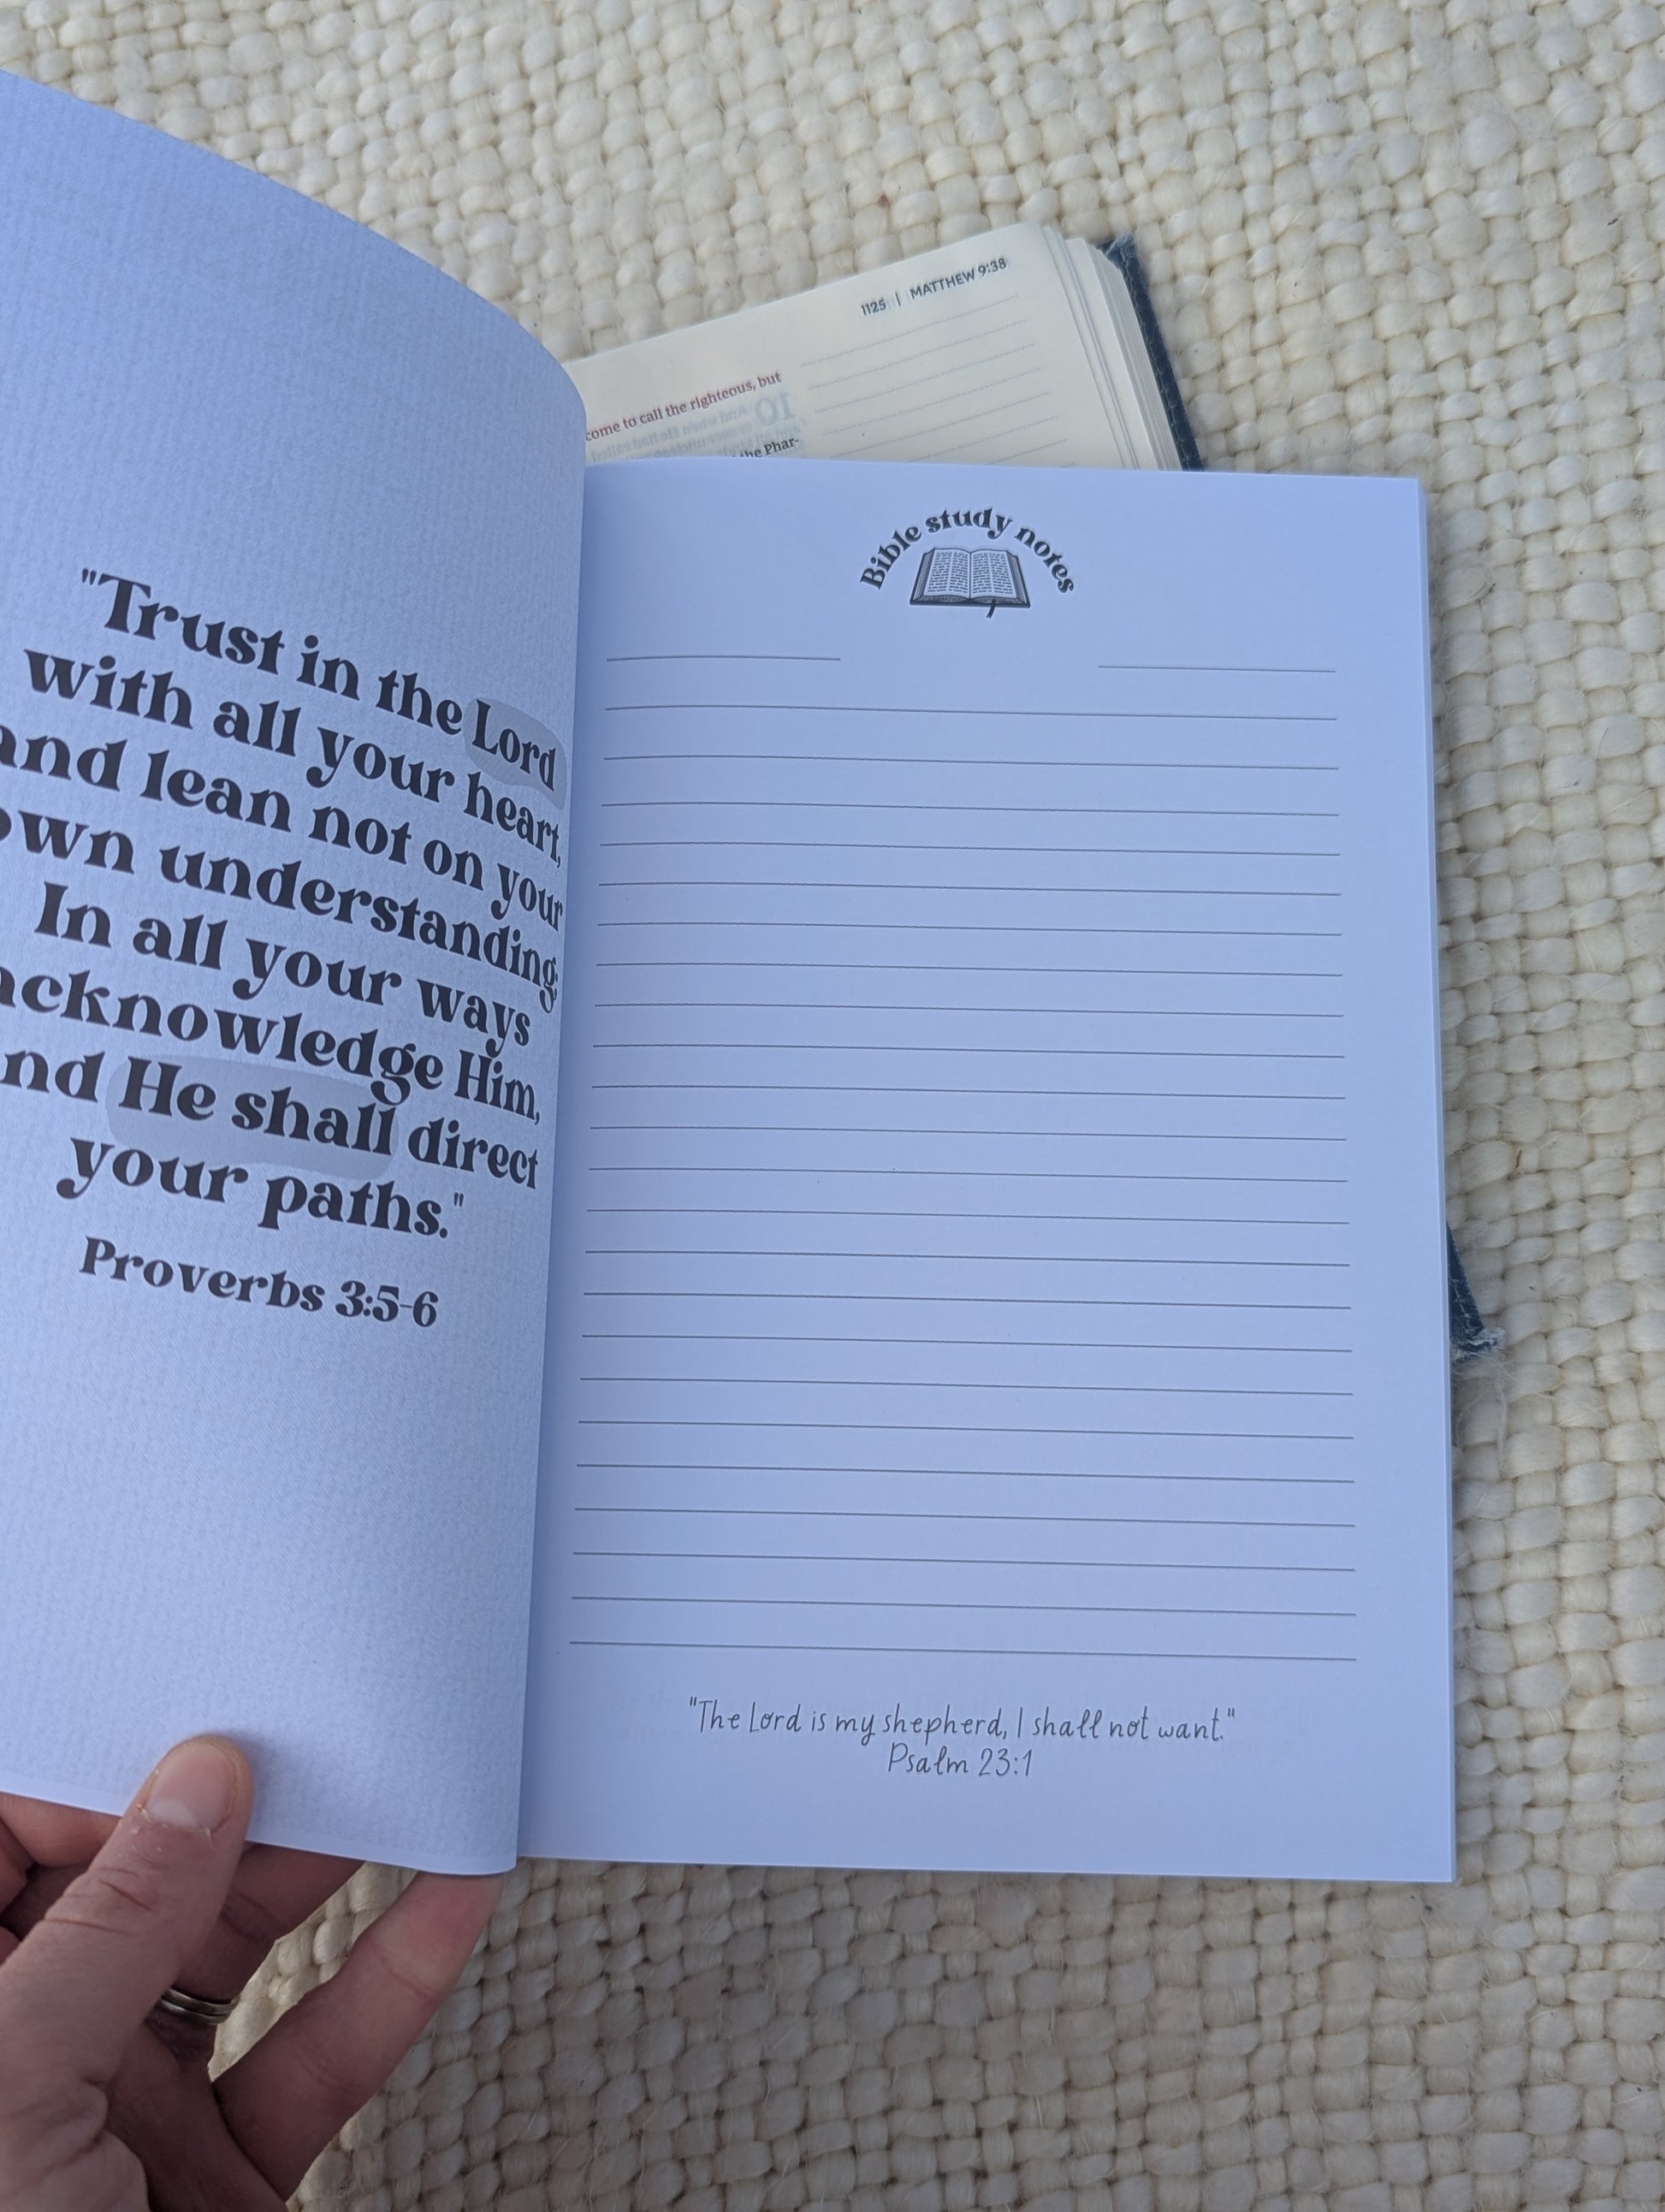 "Trust in the Lord
with all your heart,
and lean not on your
own understanding;
In all your ways
acknowledge Him,
and He shall direct
your paths."
Proverbs 3:5-6
1125 | MATTHEW 9:38
come to call the righteous, but
the Phar-
Bible study notes
"The Lord is my shepherd, I shall not want."
Psalm 23:1